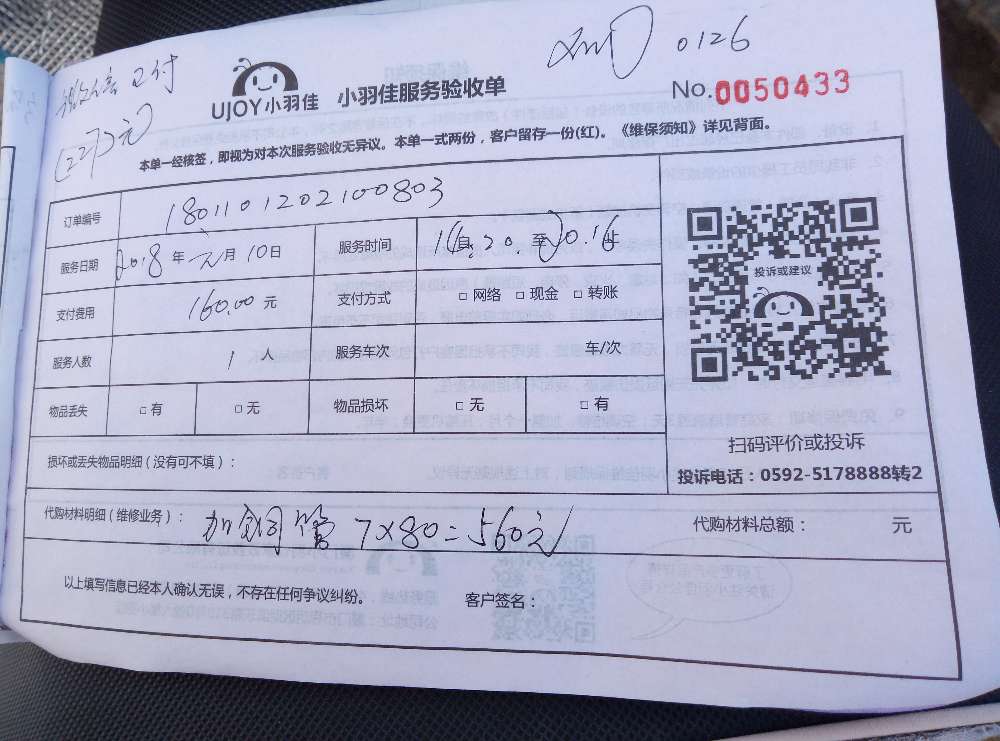 微信支付
0126
(272元)
UJOY小羽佳 小羽佳服务验收单
No.0050433
本单一经核签，即视为对本次服务验收无异议。本单一式两份，客户留存一份(红)。《维保须知》详见背面。
订单编号 1801101202100803
服务日期 2018年元月10日 服务时间 自 至 止
支付费用 160.00元 支付方式 □网络 □现金 □转账
服务人数 1人 服务车次 车/次
物品丢失 □有 □无 物品损坏 □无 □有
投诉或建议
扫码评价或投诉
投诉电话：0592-5178888转2
损坏或丢失物品明细（没有可不填）：
代购材料明细（维修业务）： 加铜管 7×80=560元
代购材料总额： 元
以上填写信息已经本人确认无误，不存在任何争议纠纷。 客户签名：